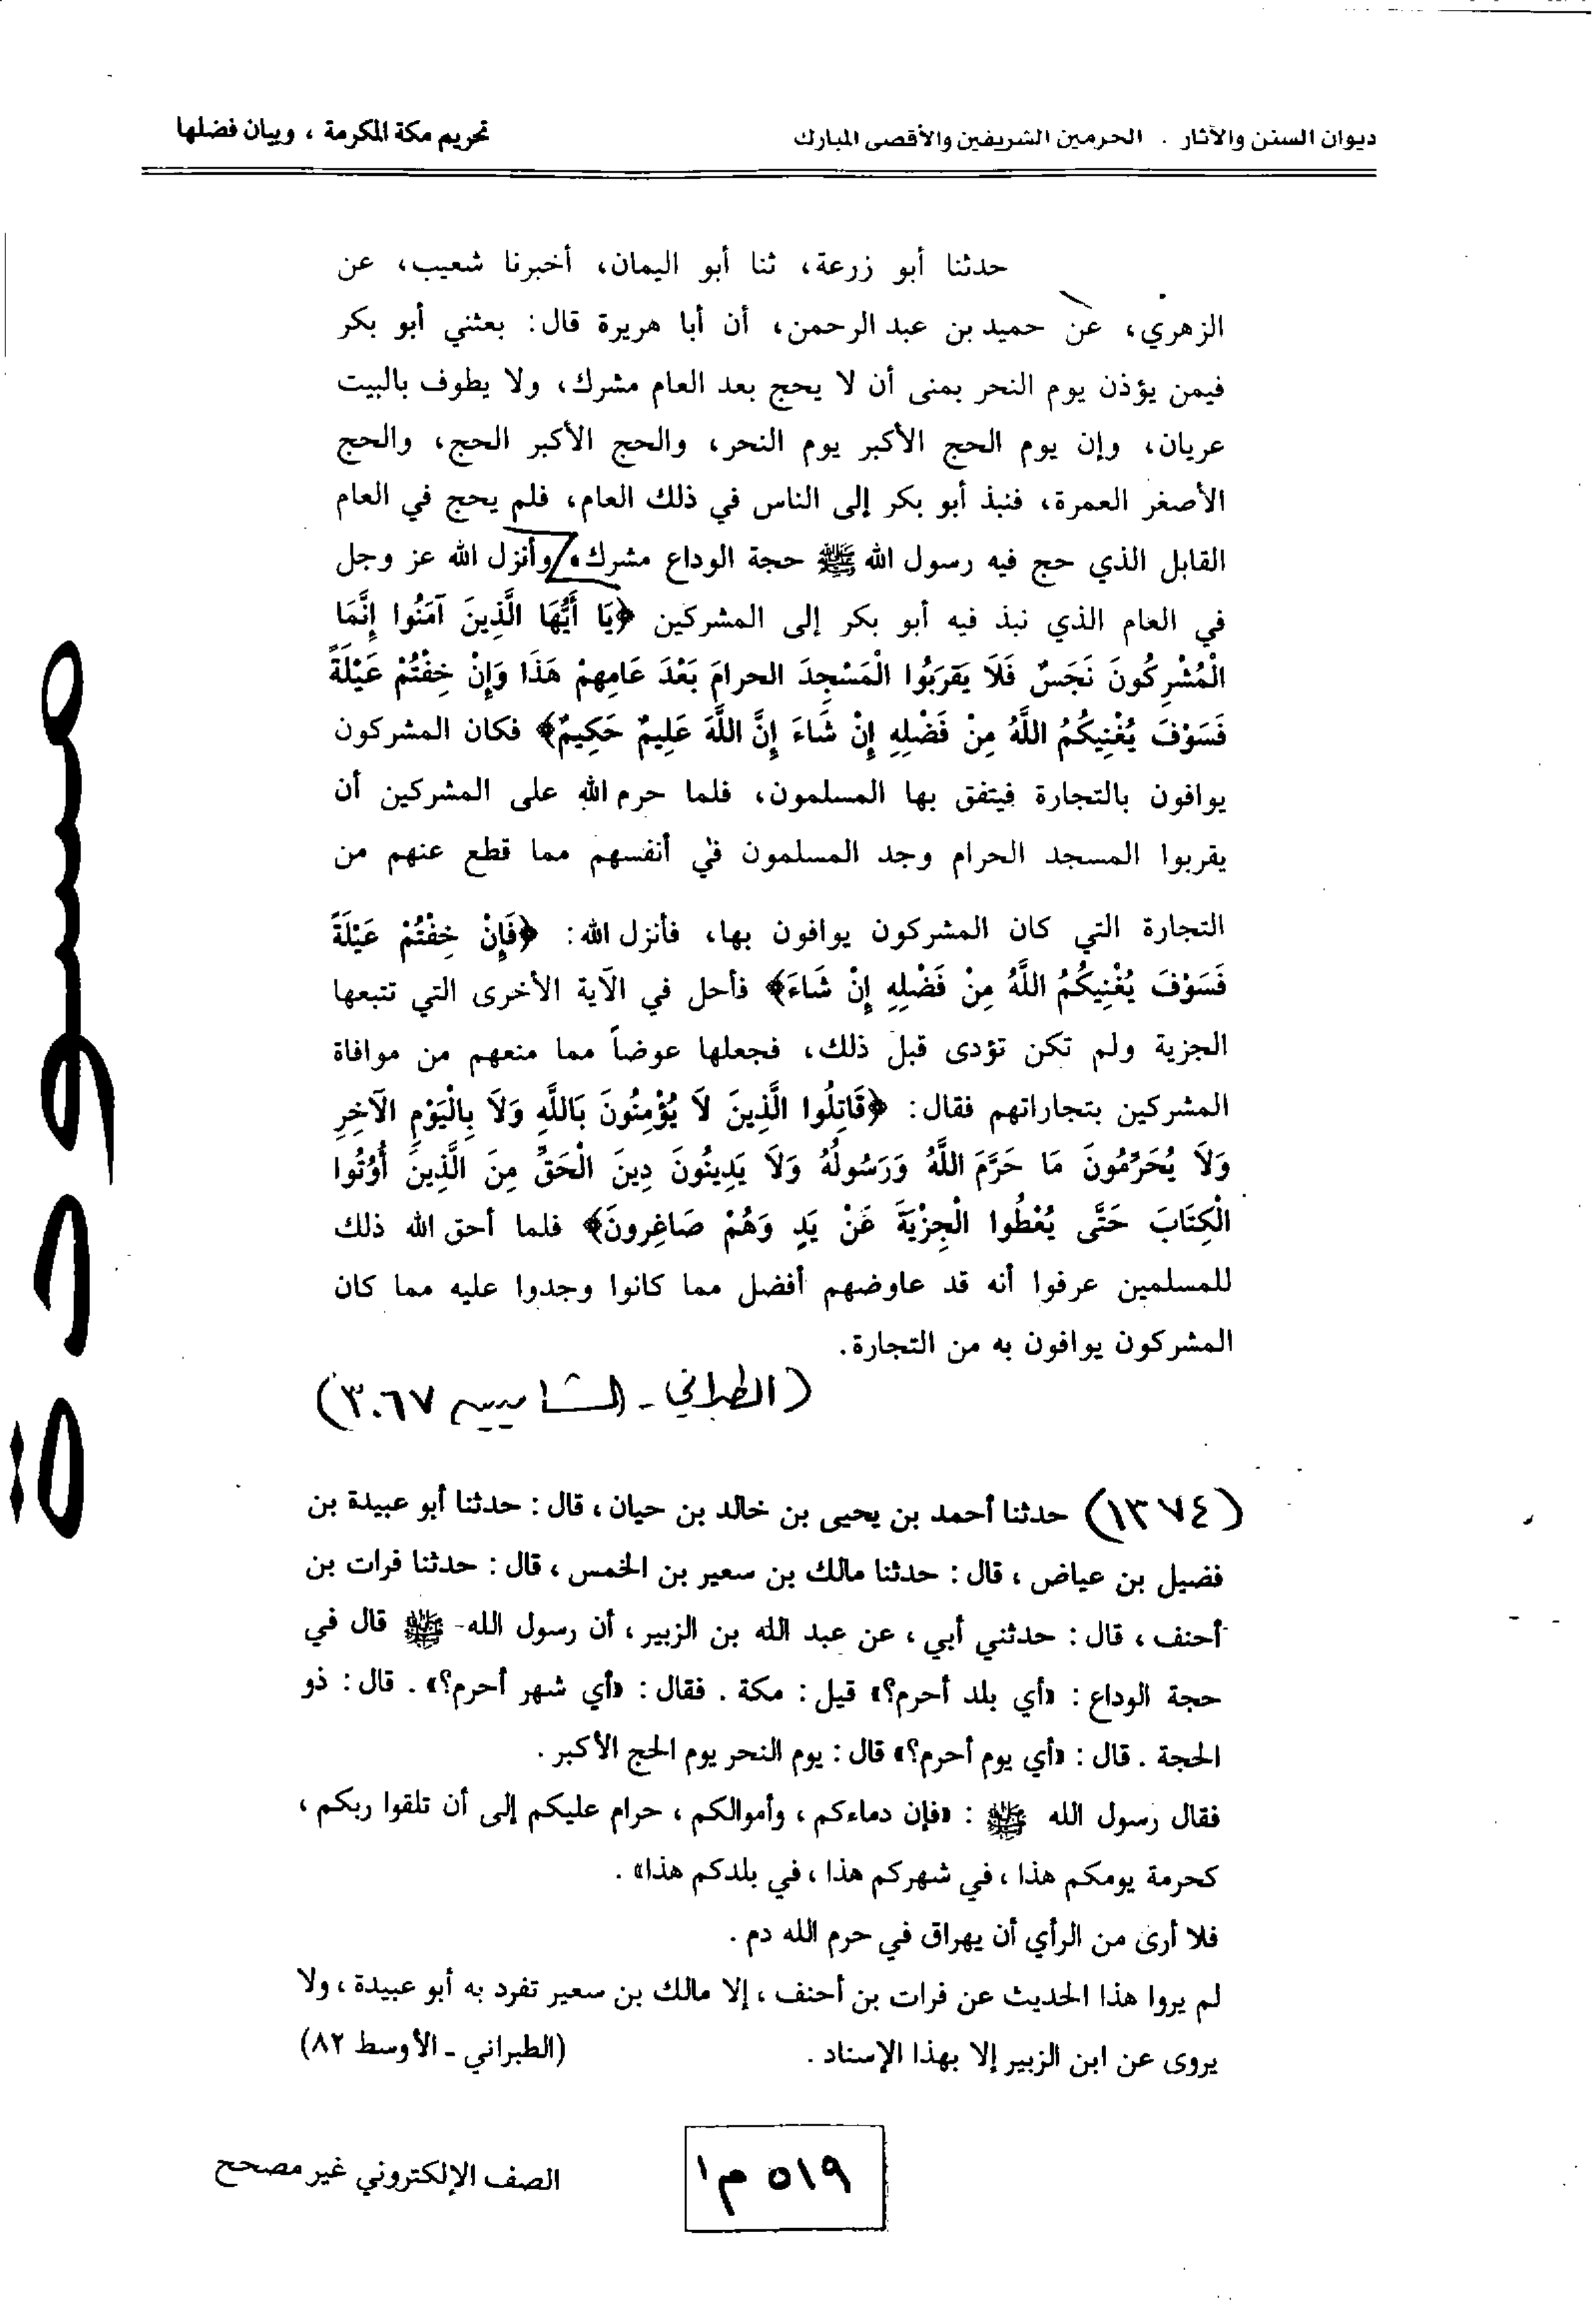 ديوان السنن والآثار . الحرمين الشريفين والأقصى المبارك
تحريم مكة المكرمة ، وبيان فضلها
حدثنا أبو زرعة، ثنا أبو اليمان، أخبرنا شعيب، عن
الزهري، عن حميد بن عبد الرحمن، أن أبا هريرة قال: بعثني أبو بكر
فيمن يؤذن يوم النحر بمنى أن لا يحج بعد العام مشرك، ولا يطوف بالبيت
عريان، وإن يوم الحج الأكبر يوم النحر، والحج الأكبر الحج، والحج
الأصغر العمرة، فنبذ أبو بكر إلى الناس في ذلك العام، فلم يحج في العام
القابل الذي حج فيه رسول الله ﷺ حجة الوداع مشرك، وأنزل الله عز وجل
في العام الذي نبذ فيه أبو بكر إلى المشركين ﴿يَا أَيُّهَا الَّذِينَ آمَنُوا إِنَّمَا
الْمُشْرِكُونَ نَجَسٌ فَلَا يَقرَبُوا الْمَسْجِدَ الحرامَ بَعْدَ عَامِهِمْ هَذَا وَإِنْ خِفْتُمْ عَيْلَةً
فَسَوْفَ يُغْنِيكُمُ اللَّهُ مِنْ فَضْلِهِ إِنْ شَاءَ إِنَّ اللَّهَ عَلِيمٌ حَكِيمٌ﴾ فكان المشركون
يوافون بالتجارة فيتفق بها المسلمون، فلما حرم الله على المشركين أن
يقربوا المسجد الحرام وجد المسلمون في أنفسهم مما قطع عنهم من
التجارة التي كان المشركون يوافون بها، فأنزل الله: ﴿فَإِنْ خِفْتُمْ عَيْلَةً
فَسَوْفَ يُغْنِيكُمُ اللَّهُ مِنْ فَضْلِهِ إِنْ شَاءَ﴾ فأحل في الآية الأخرى التي تتبعها
الجزية ولم تكن تؤدى قبل ذلك، فجعلها عوضاً مما منعهم من موافاة
المشركين بتجاراتهم فقال: ﴿قَاتِلُوا الَّذِينَ لَا يُؤْمِنُونَ بَاللَّهِ وَلَا بِالْيَوْمِ الآخِرِ
وَلَا يُحَرِّمُونَ مَا حَرَّمَ اللَّهُ وَرَسُولُهُ وَلَا يَدِينُونَ دِينَ الْحَقِّ مِنَ الَّذِينَ أُوتُوا
الْكِتَابَ حَتَّى يُعْطُوا الْجِزْيَةَ عَنْ يَدٍ وَهُمْ صَاغِرونَ﴾ فلما أحق الله ذلك
للمسلمين عرفوا أنه قد عاوضهم أفضل مما كانوا وجدوا عليه مما كان
المشركون يوافون به من التجارة.
(الطبراني - الشاميين ٣٠٦٧)
(١٣٧٤) حدثنا أحمد بن يحيى بن خالد بن حيان ، قال : حدثنا أبو عبيدة بن
فضيل بن عياض ، قال : حدثنا مالك بن سعير بن الخمس ، قال : حدثنا فرات بن
أحنف ، قال : حدثني أبي ، عن عبد الله بن الزبير ، أن رسول الله- ﷺ قال في
حجة الوداع : «أي بلد أحرم؟» قيل : مكة . فقال : «أي شهر أحرم؟» . قال : ذو
الحجة . قال : «أي يوم أحرم؟» قال : يوم النحر يوم الحج الأكبر .
فقال رسول الله ﷺ : «فإن دماءكم ، وأموالكم ، حرام عليكم إلى أن تلقوا ربكم ،
كحرمة يومكم هذا ، في شهركم هذا ، في بلدكم هذا» .
فلا أرى من الرأي أن يهراق في حرم الله دم .
لم يروا هذا الحديث عن فرات بن أحنف ، إلا مالك بن سعير تفرد به أبو عبيدة ، ولا
يروى عن ابن الزبير إلا بهذا الإسناد . (الطبراني - الأوسط ٨٢)
٥١٩ م١
الصف الإلكتروني غير مصحح
مسودة